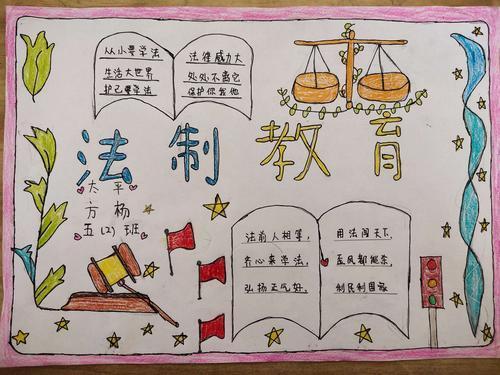 从小要学法
生活大世界
护己要学法
法律威力大
处处不离它
保护你我他
法制教育
太平
方杨
五(2)班
法前人相等，
齐心来学法，
弘扬正气好，
用法闯天下，
利民利国家